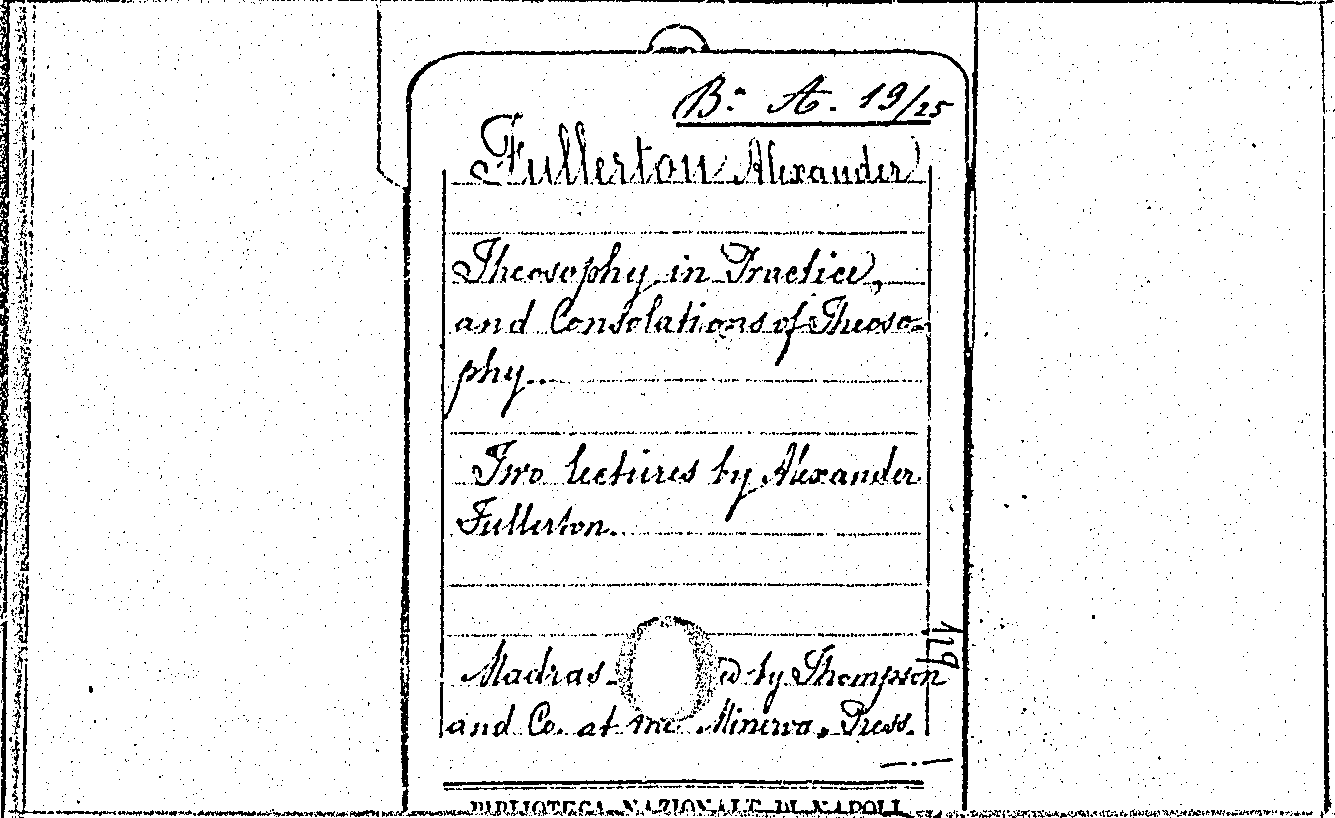 B.ª A. 19/25
Fullerton Alexander
Theosophy in Practice,
and Consolations of Theoso-
phy.
Two lectures by Alexander
Fullerton.
Madras by Thompson
and Co. at the Minerva Press.
BIBLIOTECA NAZIONALE DI NAPOLI